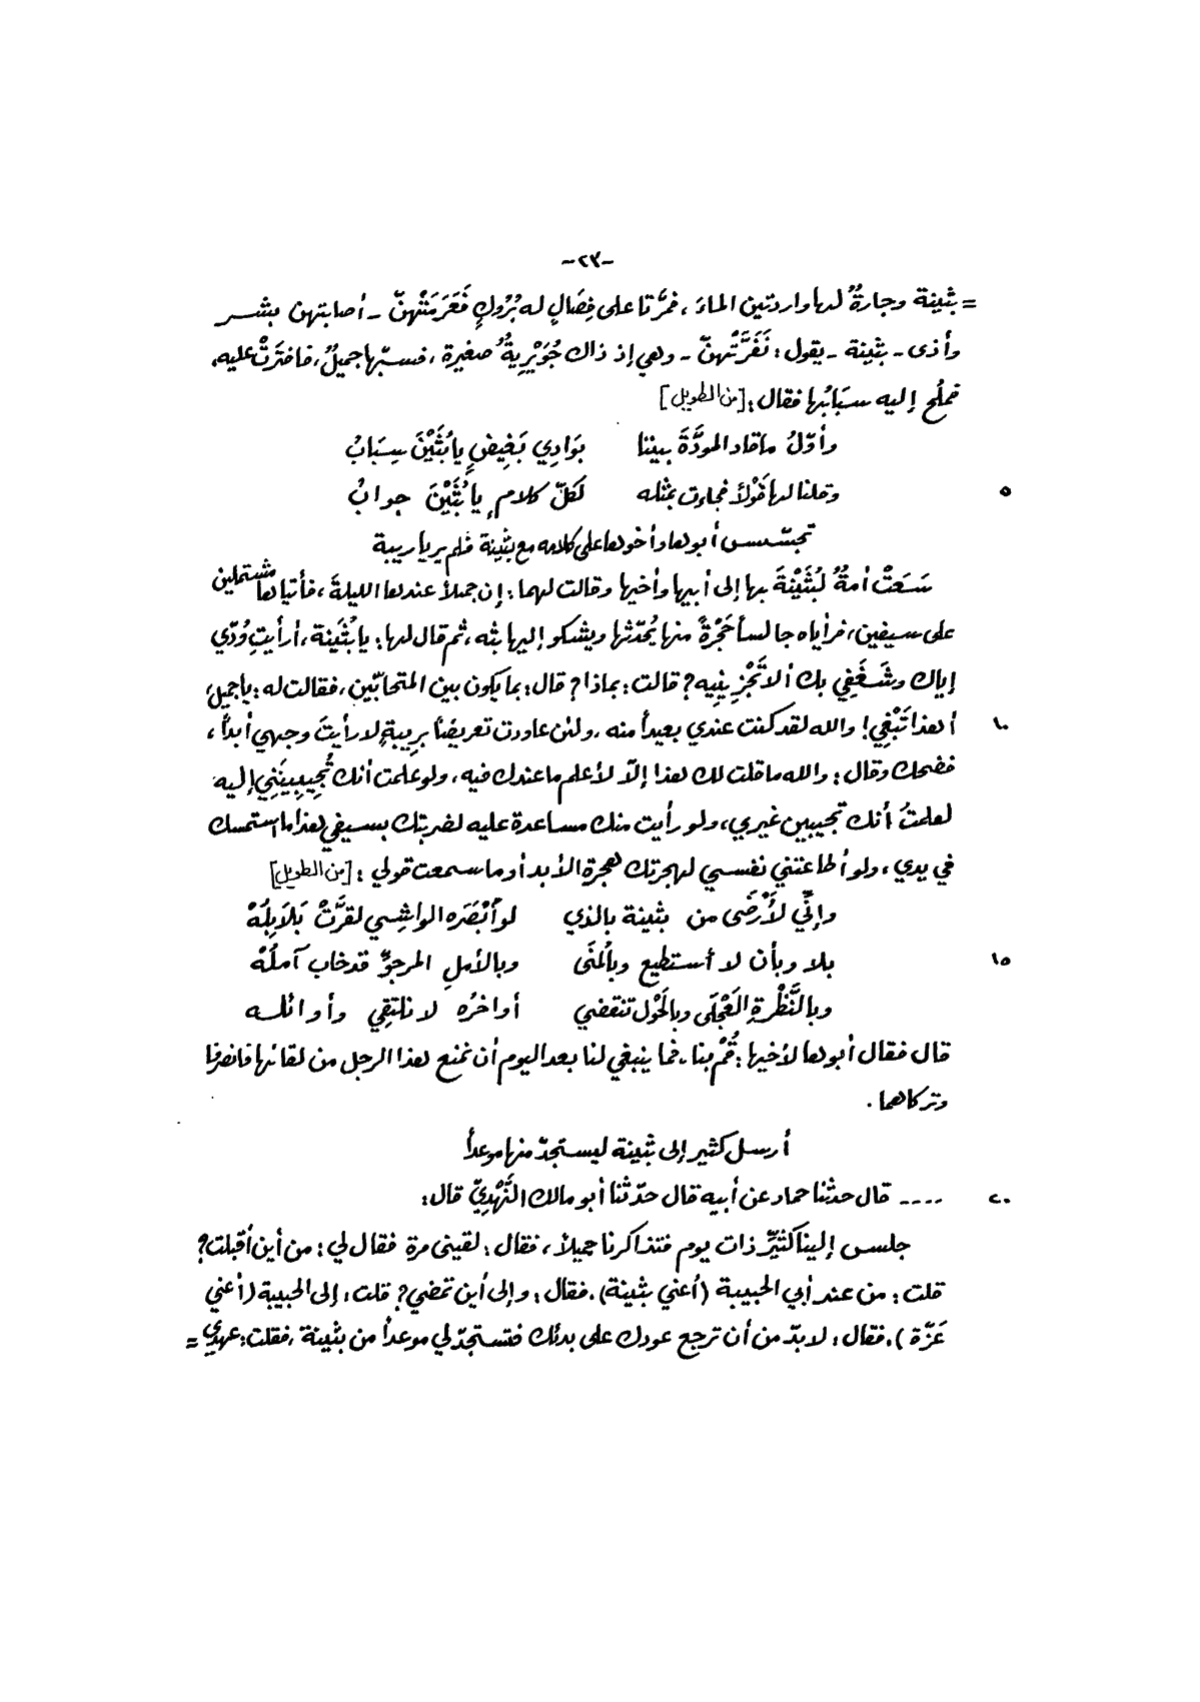 -٢٣-
= بثينة وجارةٌ لها واردتين الماءَ ، فمرَّتا على فِصَالٍ له بُرُوكٍ فَعَرَمَتْهنّ ـ أصابتهن بشــر
وأذى ـ بثينة ـ يقول : نَفَرَّتْهنّ ـ وهي إذ ذاك جُوَيْرِيةٌ صغيرة ، فسبّها جميلٌ ، فافترَتْ عليه،
فملُح إليه سبَابُها فقال : [من الطويل]
وأوّلُ ما قاد المودَّةَ بيننا بوَادِي بَغِيضٍ يا بُثَيْنَ سِبَابُ
٥ وقلنا لها قَوْلاً فجاءت بمثله لكلّ كلامٍ يا بُثَيْنَ جوابُ
تجسّسس أبوها وأخوها على كلامه مع بثينة فلم يريا ريبة
سَعَتْ أمةٌ لبُثَيْنَةَ بها إلى أبيها وأخيها وقالت لهما : إن جملاً عندها الليلةَ ، فأتياها مشتملين
على سيفين ، فرأياه جالساً حَجْرةً منها يُحدّثها ويشكو إليها بثه ، ثم قال لها : يا بُثَينة ، أرأيتِ وُدّي
إياك وشَغَفِي بك ألا تَجْزِينِيه ؟ قالت : بماذا ؟ قال : بما يكون بين المتحابّين ، فقالت له : يا جميل ،
١٠ أهذا تَبْغِي ! والله لقد كنت عندي بعيداً منه ، ولئن عاودت تعريضًا بريبةٍ لا رأيتَ وجهي أبداً ،
فضحك وقال : والله ما قلت لك هذا إلّا لأعلم ما عندك فيه ، ولو علمت أنك تُجِيبِينَنِي إليه
لعلمتُ أنك تجيبين غيري ، ولو رأيت منك مساعدة عليه لضربتك بسيفي هذا ما استمسك
في يدي ، ولو أطاعتني نفسي لهجرتك هجرة الأبد أو ما سمعت قولي : [من الطويل]
وإنِّي لأَرْضَى من بثينة بالذي لو أَبْصَره الواشِي لقرَّتْ بَلاَبِلُهْ
١٥ بلا وبأن لا أستطيع وبالُمنَى وبالأملِ المرجوِّ قد خاب آملُهْ
وبالنَّظْرةِ العَجْلَى وبالحَوْل تنقضي أواخرُه لا نلتقِي وأوائله
قال فقال أبوها لأخيها : قُمْ بنا ، فما ينبغي لنا بعد اليوم أن نمنع هذا الرجل من لقائها فانصرفا
وتركاهما .
أرسل كثير إلى بثينة ليستجدّ منها موعداً
٢٠ ---- قال حدثنا حماد عن أبيه قال حدّثنا أبو مالك النَّهْدِيّ قال :
جلس إلينا كثيِّر ذات يوم فتذاكرنا جميلاً ، فقال : لقيني مرة فقال لي : من أين أقبلت ؟
قلت : من عند أبي الحبيبة (أعني بثينة) ، فقال : وإلى أين تمضي ؟ قلت : إلى الحبيبة (أعني
عَزّة ) ، فقال : لا بدّ من أن ترجع عودك على بدئك فتستجدّ لي موعداً من بثينة ، فقلت : عهدي =